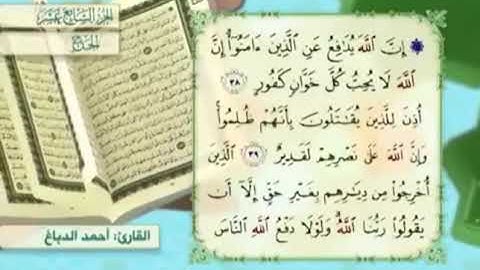 الجزء السابع عشر
الحج
۞ إِنَّ ٱللَّهَ يُدَٰفِعُ عَنِ ٱلَّذِينَ ءَامَنُوٓا۟ إِنَّ
ٱللَّهَ لَا يُحِبُّ كُلَّ خَوَّانٍ كَفُورٍ ٣٨
أُذِنَ لِلَّذِينَ يُقَٰتَلُونَ بِأَنَّهُمْ ظُلِمُوا۟
وَإِنَّ ٱللَّهَ عَلَىٰ نَصْرِهِمْ لَقَدِيرٌ ٣٩ ٱلَّذِينَ
أُخْرِجُوا۟ مِن دِيَٰرِهِم بِغَيْرِ حَقٍّ إِلَّآ أَن
يَقُولُوا۟ رَبُّنَا ٱللَّهُ وَلَوْلَا دَفْعُ ٱللَّهِ ٱلنَّاسَ
القارئ: أحمد الدباغ